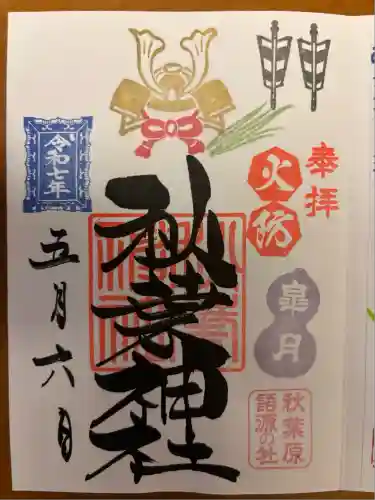 奉拝
火防
皐月
秋葉原
語源の社
秋葉神社
令和七年
五月六日